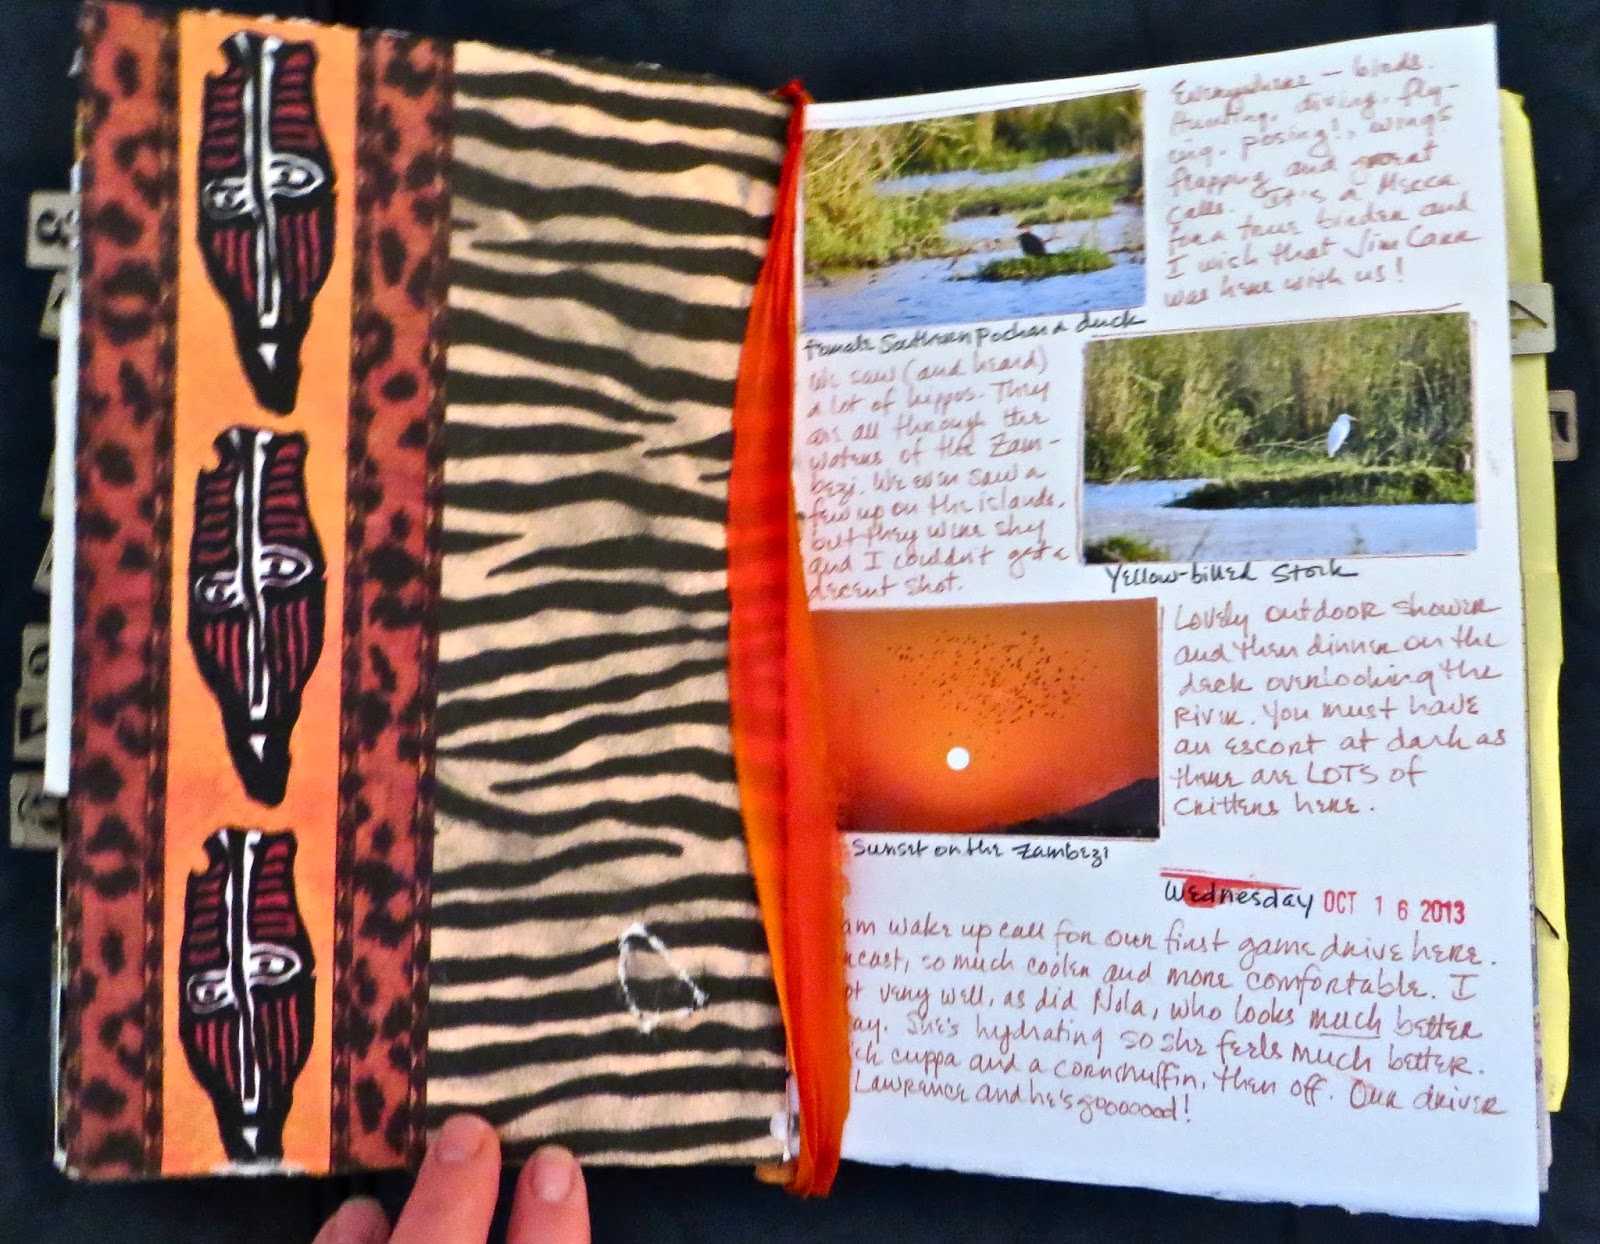 Everywhere — birds.
Hunting, diving, fly-
ing, posing!, wings
flapping and great
calls. It's a Mecca
for a true birder and
I wish that Jim Carr
was here with us!
female Southern Pochard duck
We saw (and heard)
a lot of hippos. They
are all through the
waters of the Zam-
bezi. We even saw a
few up on the islands,
but they were shy
and I couldn't get a
decent shot.
Yellow-billed Stork
Lovely outdoor shower
and then dinner on the
deck overlooking the
River. You must have
an escort at dark as
there are LOTS of
critters here.
Sunset on the Zambezi
Wednesday OCT 16 2013
am wake up call for our first game drive here.
cast, so much cooler and more comfortable. I
ot very well, as did Nola, who looks much better
ay. She's hydrating so she feels much better.
ck cuppa and a cornmuffin, then off. Our driver
Lawrence and he's gooooood!